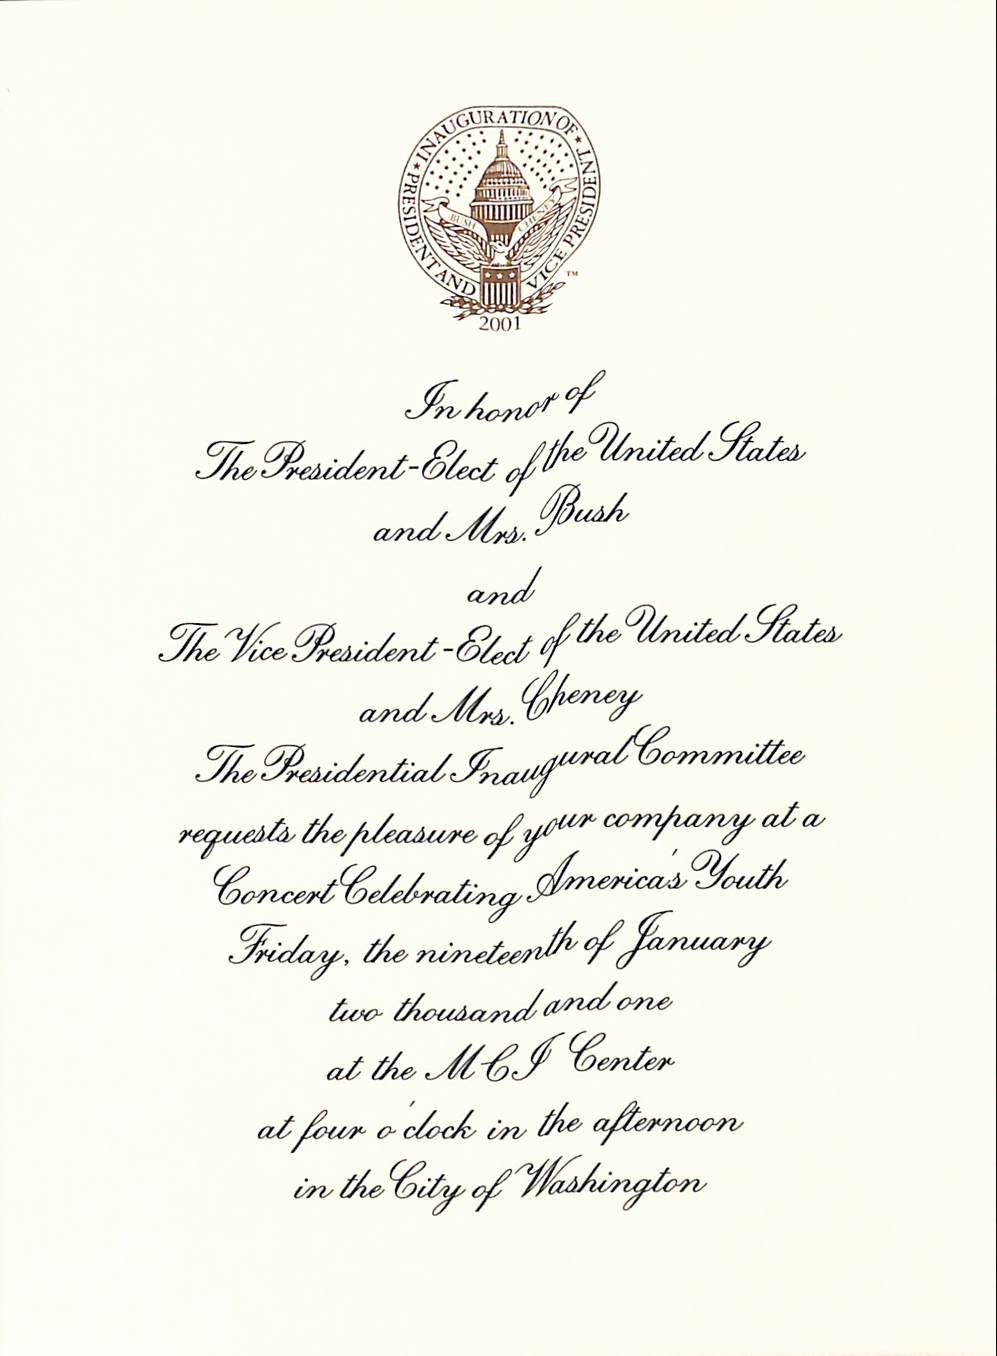 INAUGURATION OF
PRESIDENT AND VICE PRESIDENT
BUSH CHENEY
TM
2001
In honor of
The President-Elect of the United States
and Mrs. Bush
and
The Vice President-Elect of the United States
and Mrs. Cheney
The Presidential Inaugural Committee
requests the pleasure of your company at a
Concert Celebrating America's Youth
Friday, the nineteenth of January
two thousand and one
at the MCI Center
at four o'clock in the afternoon
in the City of Washington